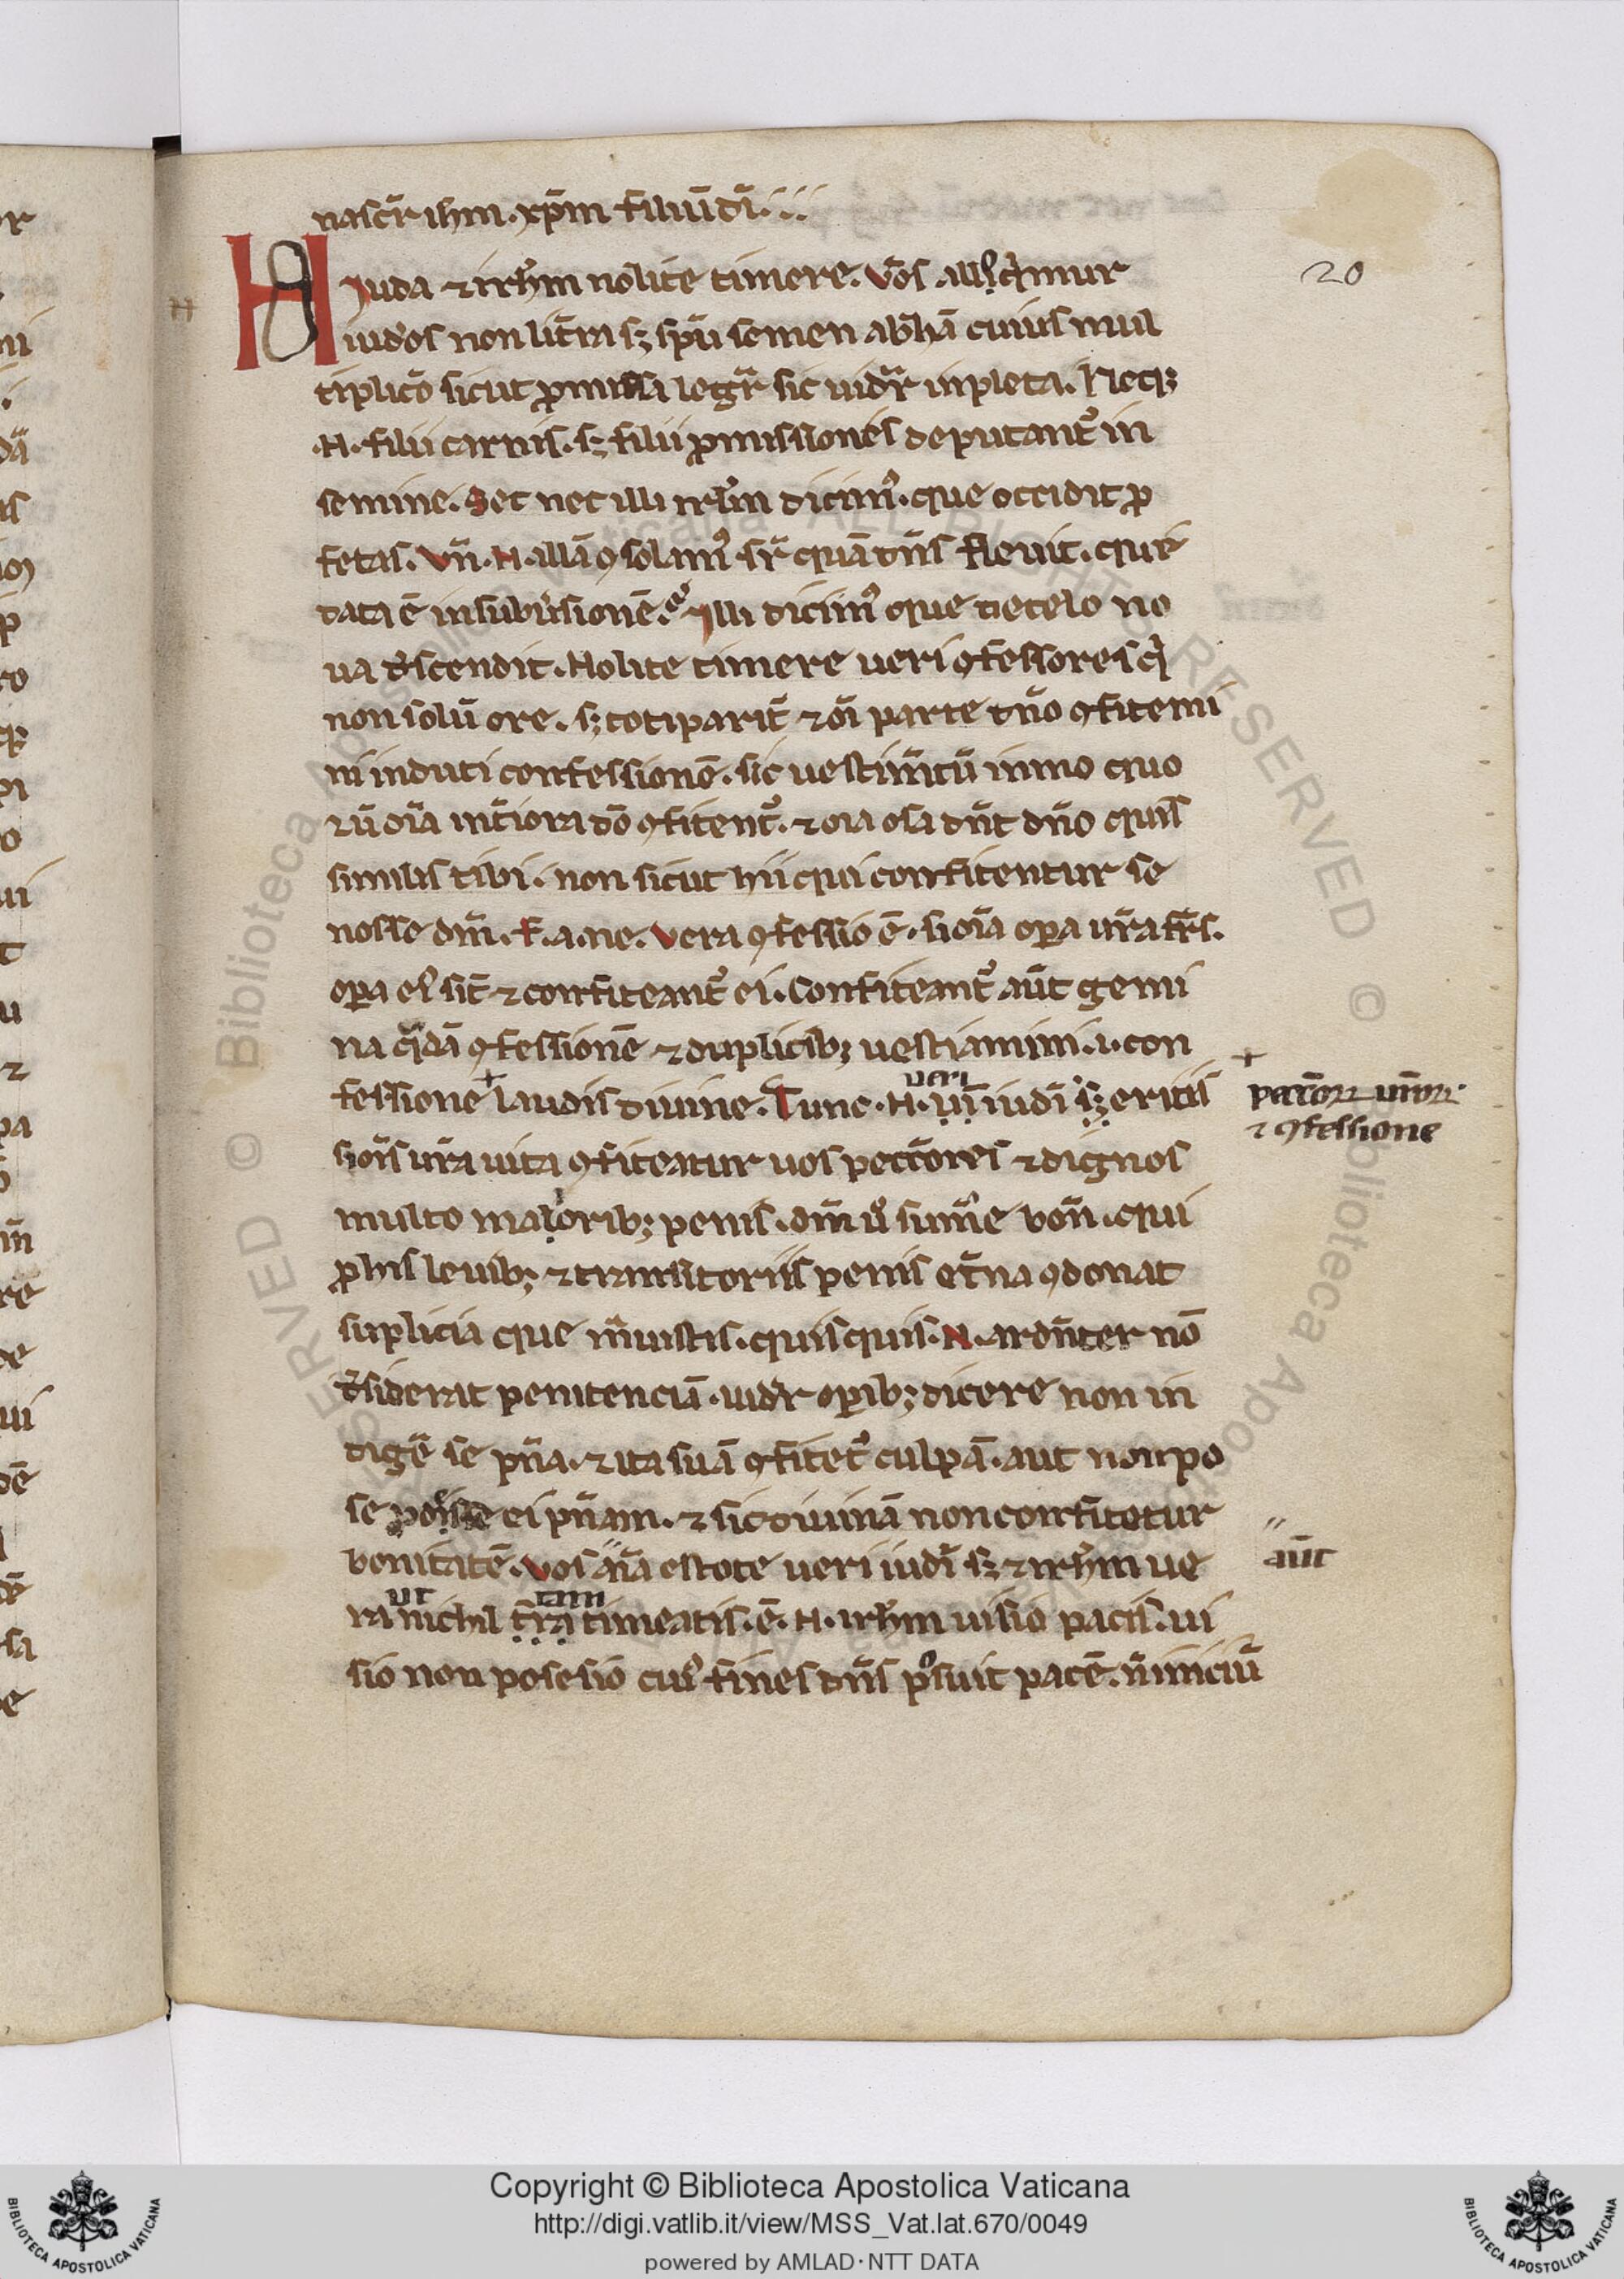 nascr̄ ihm. xp̄m filiū dī.
20
O Juda ⁊ irl̄m nolite timere. Vos alloq̇mur
iudos non litt̄ra sꝫ spū semen abrhā cuius mul
tiplicō sicut ꝓmissa legr̄ sic uidr̄ inpleta. Neqꝫ
.N. filii carnis. sꝫ filii ꝓmissiones deputant᷒ in
semine. Set nec illi irl̄m dicim᷒. que occidit ꝓ
fetas. Vn̄. N. illā ꝯsolam᷒ sr̄ quā dn̄s fleuit. que
data ē in subūsionē. Illi dicim᷒ que de celo no
ua descendit. Nolite timere ueri ꝯfessores q̇
non solū ore. sꝫ toti parit̄ ⁊ oī parte dn̄o ꝯfitemi
ni induti confessionē. sic uestim̄tū inmo quo
rū oīa int̄iora dō ꝯfitent᷒. ⁊ oīa osa dn̄t dn̄o quis
similis tibi. non sicut hii qui confitentur se
nosse dm̄. F. a. ne. Vera ꝯfessio ē. si oīa oꝑa ur̄a fr̄s.
oꝑa ei᷒ sīt ⁊ confiteant᷒ ei. Confiteant᷒ aūt gemi
na q̇dā ꝯfessionē ⁊ duplicibꝫ uestiamini. i. con
fessione laudis diuine. Tunc. N. ueri iudī sꝫ eritis
+ peccōꝝ ur̄oꝝ
⁊ ꝯfessione
si oīs ur̄a uita ꝯfiteatur uos peccōres ⁊ dignos
multo maioribꝫ penis. dm̄ ū summe bon̄. qui
ꝓ his leuibꝫ ⁊ transitoriis penis et̄na ꝯdonat
suplicia que m̄uistis. quisquis. N. ardn̄ter nō
desiderat penitenciā. uidr̄ oꝑibꝫ dicere non in
digē se pn̄a. ⁊ ita suā ꝯfitet᷒ culpā. aut non po
se pdesse ei pn̄am. ⁊ sic diuinā non confitetur
bonitatē. Vos estote ueri iudī sꝫ ⁊ irl̄m ue
aūt
ra ut nichil tam timeatis. ē. N. irl̄m uisio pacis. ui
sio non posesio cui᷒ fines dn̄s posuit pacē.
Copyright © Biblioteca Apostolica Vaticana
http://digi.vatlib.it/view/MSS_Vat.lat.670/0049
powered by AMLAD·NTT DATA